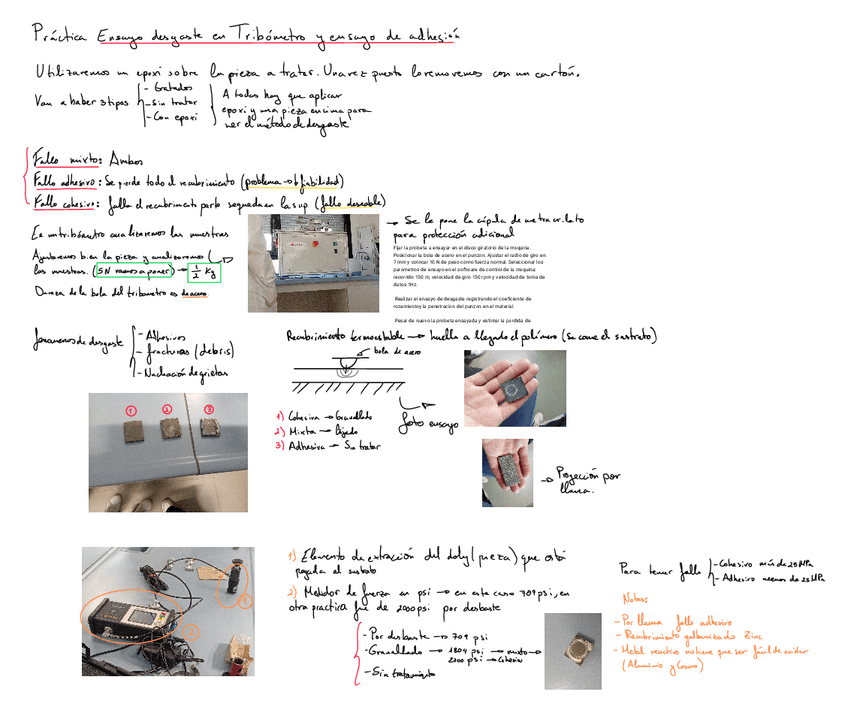 Práctica Ensayo desgaste en Tribómetro y ensayo de adhesión
Utilizaremos un epoxi sobre la pieza a tratar. Una vez puesto lo removemos con un cartón.
Van a haber 3 tipos
- Gratados
- Sin tratar
- Con epoxi
A todas hay que aplicar
epoxi y una pieza encima para
ver el método de desgaste
Fallo mixto: Ambos
Fallo adhesivo: Se pierde todo el recubrimiento (problema → fiabilidad)
Fallo cohesivo: falla el recubrimiento parte se queda en la sup (fallo deseable)
En un tribómetro analizaremos las muestras
Ajustaremos bien la pieza y analizaremos
las muestras. (5N vamos a poner) → 1/2 Kg
Dureza de la bola del tribometro es de acero
→ Se le pone la cúpula de metacrilato
para protección adicional
Fijar la probeta a ensayar en el disco giratorio de la maquina.
Posicionar la bola de acero en el punzon. Ajustar el radio de giro en
7 mm y colocar 10 N de peso como fuerza normal. Seleccionar los
parametros de ensayo en el software de control de la maquina:
recorrido 150 m, velocidad de giro 150 rpm y velocidad de toma de
datos 1Hz.
Realizar el ensayo de desgaste registrando el coeficiente de
rozamiento y la penetración del punzon en el material.
Pesar de nuevo la probeta ensayada y estimar la perdida de
fenomenos de desgaste
- Adhesivos
- fracturas (debris)
- Nucleación de grietas
Recubrimiento termoestable → huella a llegado al polímero (se come el sustrato)
bola de acero
1) Cohesiva → Gravallado
2) Mixta → Lijado
3) Adhesiva → Sin tratar
foto ensayo
1 2 3
→ Proyección por
llama.
1) Elemento de extracción del dolly (pieza) que está
pegada al sustrato
2) Medidor de fuerza en psi → en este caso 709 psi, en
otra practica fue de 2000 psi por desbaste
- Por desbaste → 709 psi
- Gravallado → 1804 psi → mixto →
2100 psi → Cohesivo
- Sin tratamiento
1
2
Para tener fallo
- Cohesivo más de 25 MPa
- Adhesivo menos de 25 MPa
Notas:
- Por llama fallo adhesivo
- Recubrimiento galvanizado Zinc
- Metal reactivo no tiene que ser fácil de oxidar
(Aluminio y Cromo)